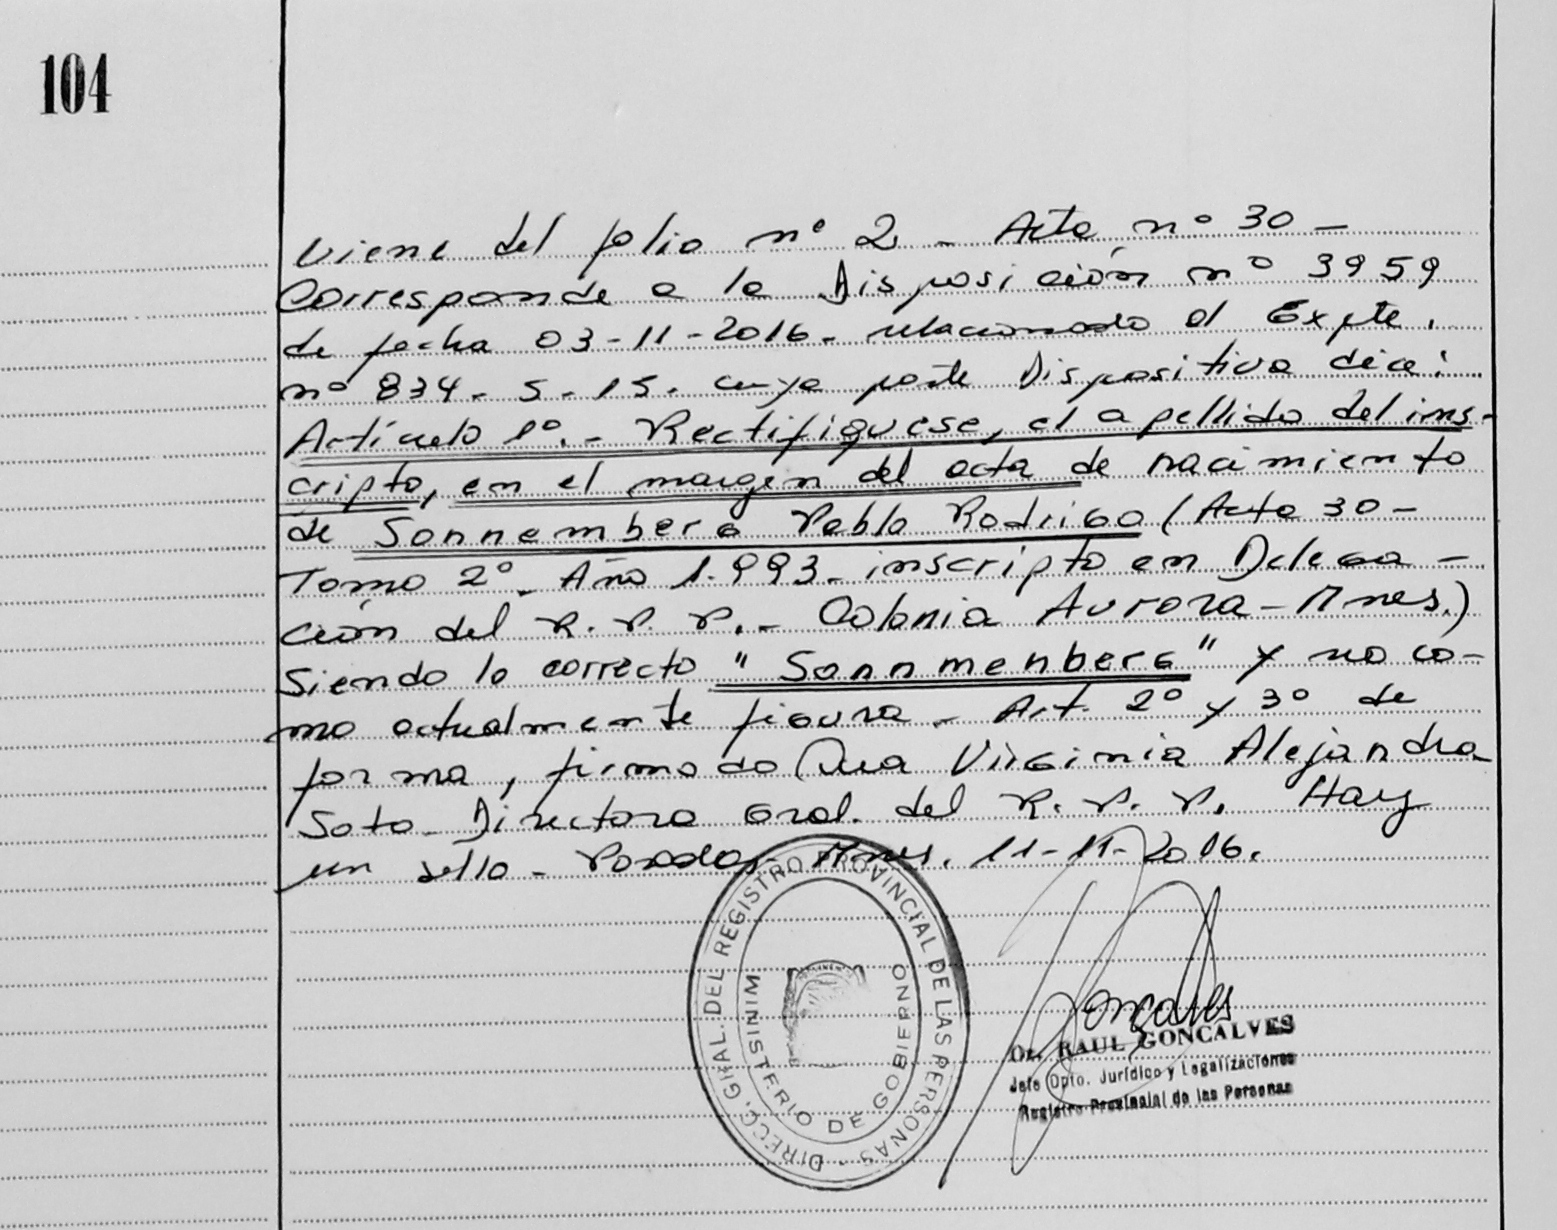 104
Viene del folio nº 2 - Acta nº 30 -
Corresponde a la Disposición nº 3959
de fecha 03-11-2016 - relacionado al Expte.
nº 834 - S - 15. cuya parte Dispositiva dice:
Artículo 1º. - Rectifiquese, el apellido del ins-
cripto, en el margen del acta de nacimiento
de Sonnemberg Pablo Rodrigo (Acta 30 -
Tomo 2º - Año 1.993 - inscripto en Delega -
ción del R. P. P. - Colonia Aurora - Mnes.)
Siendo lo correcto "Sonnmenberg" y no co-
mo actualmente figura - Art. 2º y 3º de
forma, firmado Dra Virginia Alejandra
Soto - Directora Gral. del R. P. P. Hay
un sello - Posadas Mnes. 11-11-2016.
DIRECC. GRAL. DEL REGISTRO PROVINCIAL DE LAS PERSONAS -
MINISTERIO DE GOBIERNO
Goncalves
Dr. RAUL GONCALVES
Jefe Dpto. Jurídico y Legalizaciones
Registro Provincial de las Personas